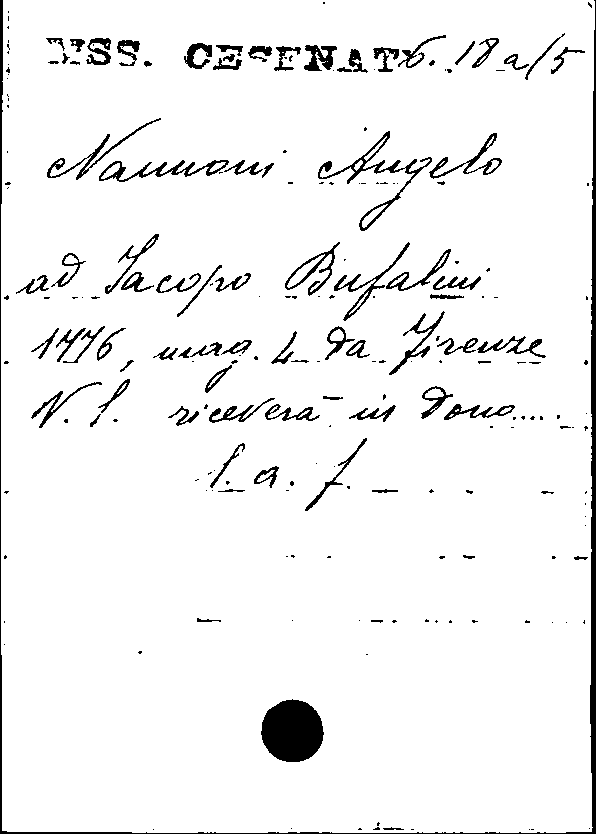 MSS. CESENAT 6. 18 a/5
Nannoni Angelo
ad Jacopo Bufalini
1776, mag. 4 da Firenze
V. S. riceverà in dono....
l. a. f.